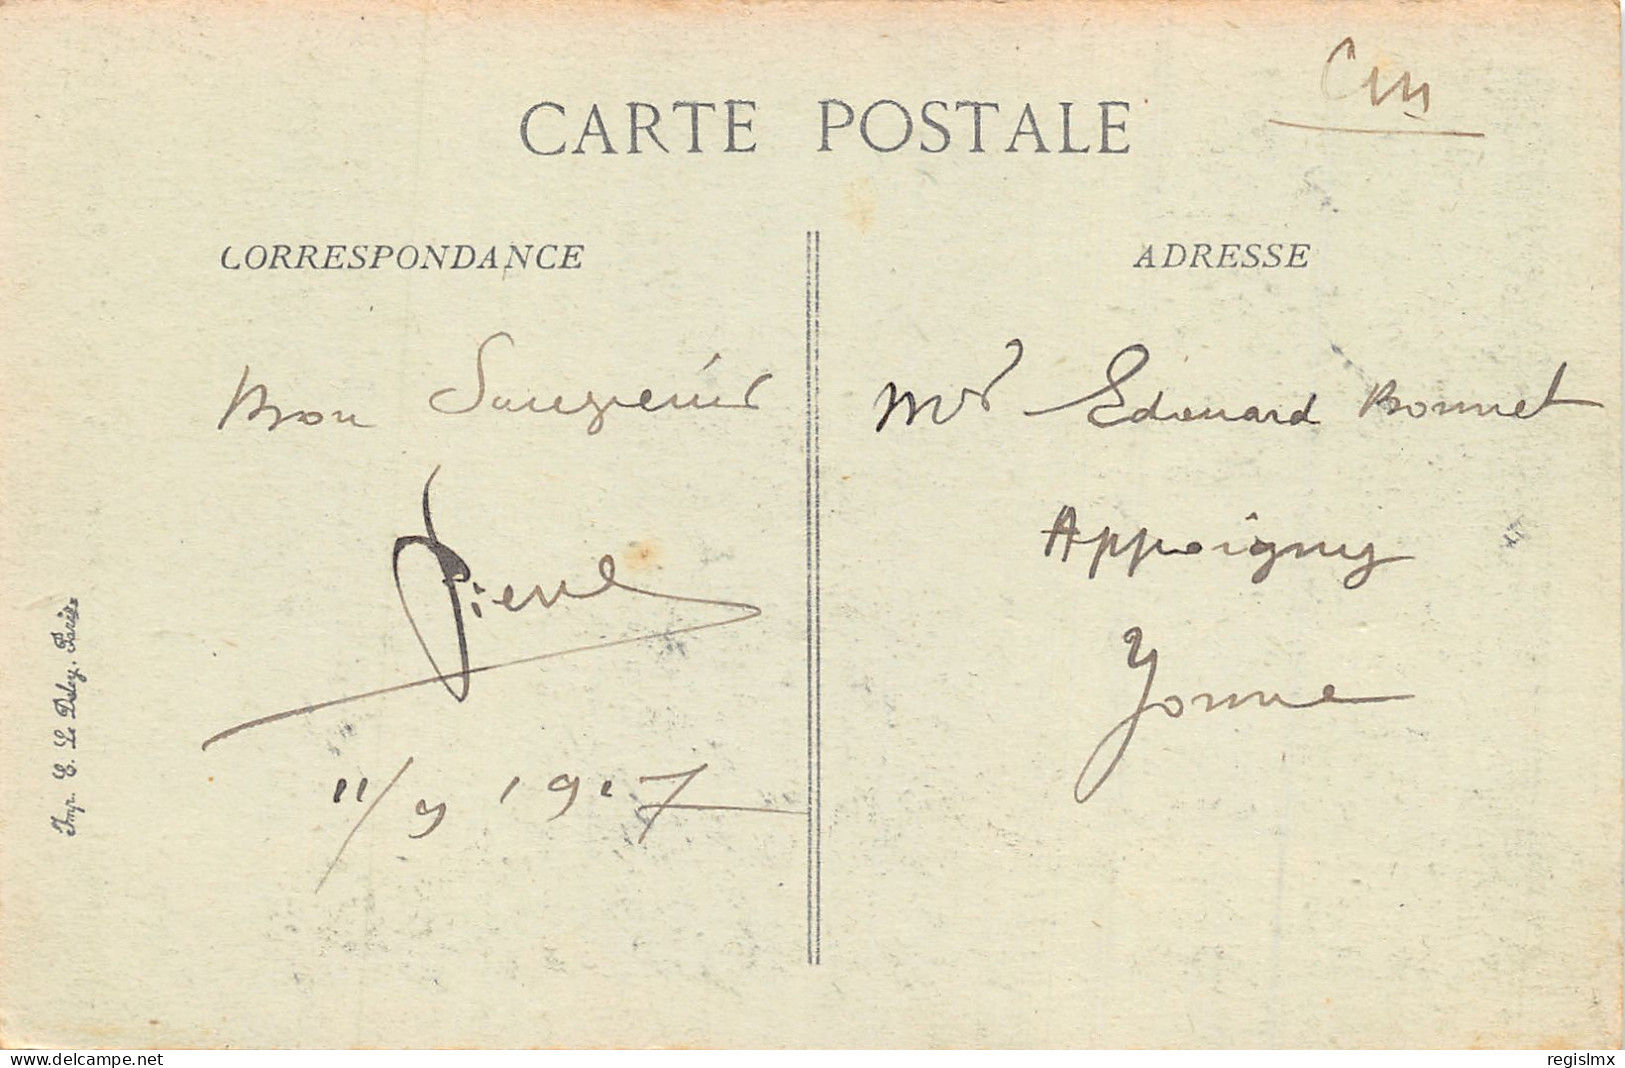 Cm
CARTE POSTALE
CORRESPONDANCE
Bon Souvenir
Pierre
11/9 1917
Imp. E. Le Deley, Paris
ADRESSE
Mr Edouard Bonnet
Appoigny
Yonne
delcampe.net
regislmx